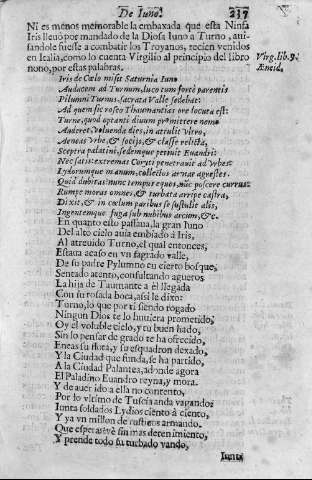 De Iuno. 237
Ni es menos memorable la embaxada que esta Ninfa
Iris lleuò por mandado de la Diosa Iuno a Turno, aui-
sandole fuesse a combatir los Troyanos, recien venidos
en Italia, como lo cuenta Virgilio al principio del libro
nono, por estas palabras.
Virg. lib. 9.
Æneid.
Iris de Cœlo misit Saturnia Iuno
Audacem ad Turnum, luco tum forte parentis
Pilumni Turnus sacrata Valle sedebat:
Ad quem sic roseo Thaumantias ore locuta est:
Turne, quod optanti divum promittere nemo
Auderet, Voluenda dies, in attulit Vltro,
Aeneas Vrbe, & socijs, & classe relicta,
Sceptra palatini, sedemque petiuit Euandri:
Nec satis: extremas Coryti penetrauit ad Vrbes:
Lydorumque manum, collectos armat agrestes.
Quid dubitas? nunc tempus equos, nũc poscere currus:
Rumpe moras omnes, & turbata arripe castra,
Dixit, & in cœlum paribus se sustulit alis,
Ingentemque fuga sub nubibus arcum, &c.
En quanto esto passaua, la gran Iuno
Del alto cielo auia embiado à Iris,
Al atreuido Turno, el qual entonces,
Estaua acaso en vn sagrado valle,
De su padre Pylumno en cierto bosque,
Sentado atento, consultando agueros
La hija de Taumante a èl llegada
Con su rosada boca, assi le dixo:
Torno, lo que por ti siendo rogado
Ningun Dios te lo huuiera prometido,
Oy el voluble cielo, y tu buen hado,
Sin lo pensar de grado te ha ofrecido,
Eneas su flota, y su esquadron dexado,
Y la Ciudad que funda, se ha partido,
A la Ciudad Palantea, adonde agora
El Paladino Euandro reyna, y mora.
Y de auer ido a ella no contento,
Por lo vltimo de Tuscia anda vagando,
Iunta soldados Lydios ciento à ciento,
Y ya vn millon de rusticos armando.
Que esperas? vè sin mas detenimiento,
Y prende todo su turbado vando,
Iunto